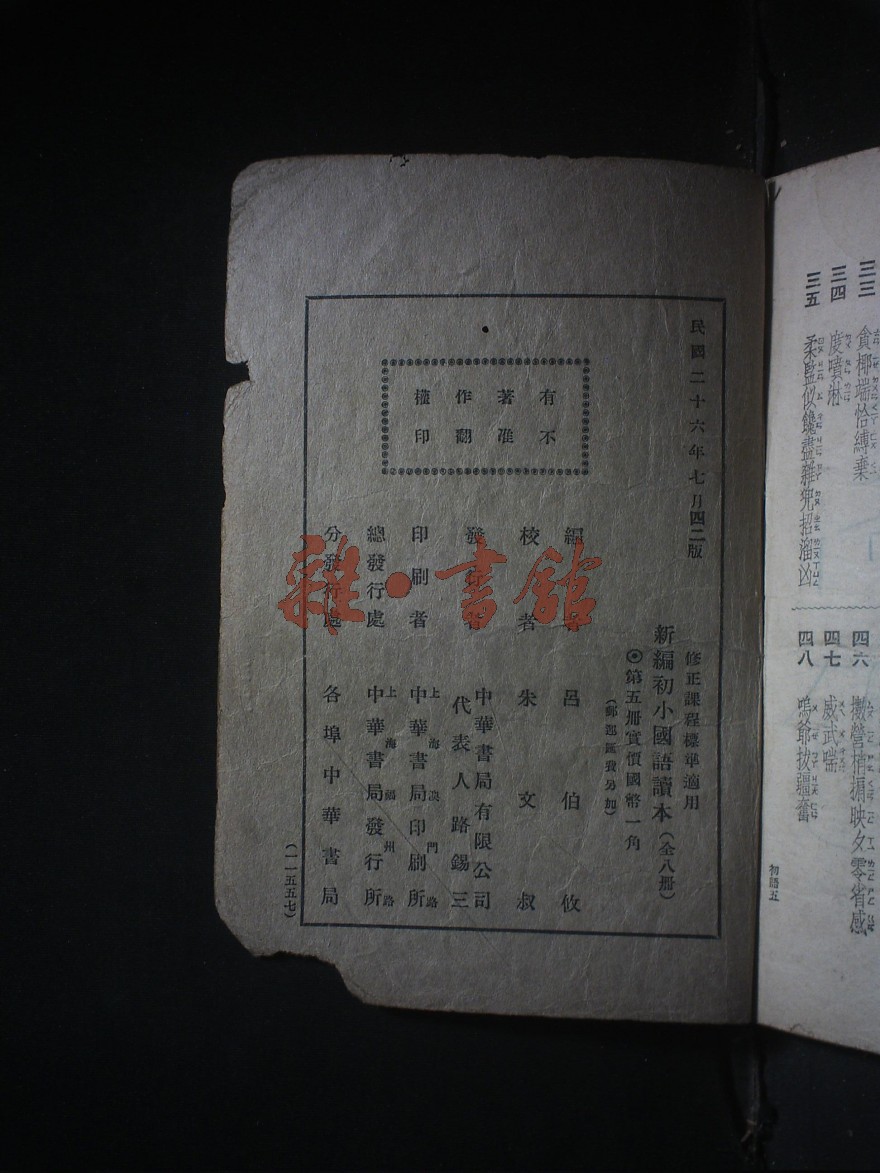 民國二十六年七月四二版
修正課程標準適用
新編初小國語讀本（全八冊）
◎第五冊實價國幣一角
（郵運匯費另加）
有著作權
不准翻印
編者 呂伯攸
校者 朱文叔
發行者 中華書局有限公司
代表人路錫三
印刷者 上海澳門路
中華書局印刷所
總發行處 上海福州路
中華書局發行所
分發行處 各埠中華書局
（一一五五七）
雜·書館
三三
三四
三五
四六
四七 威武喘
四八
初語五